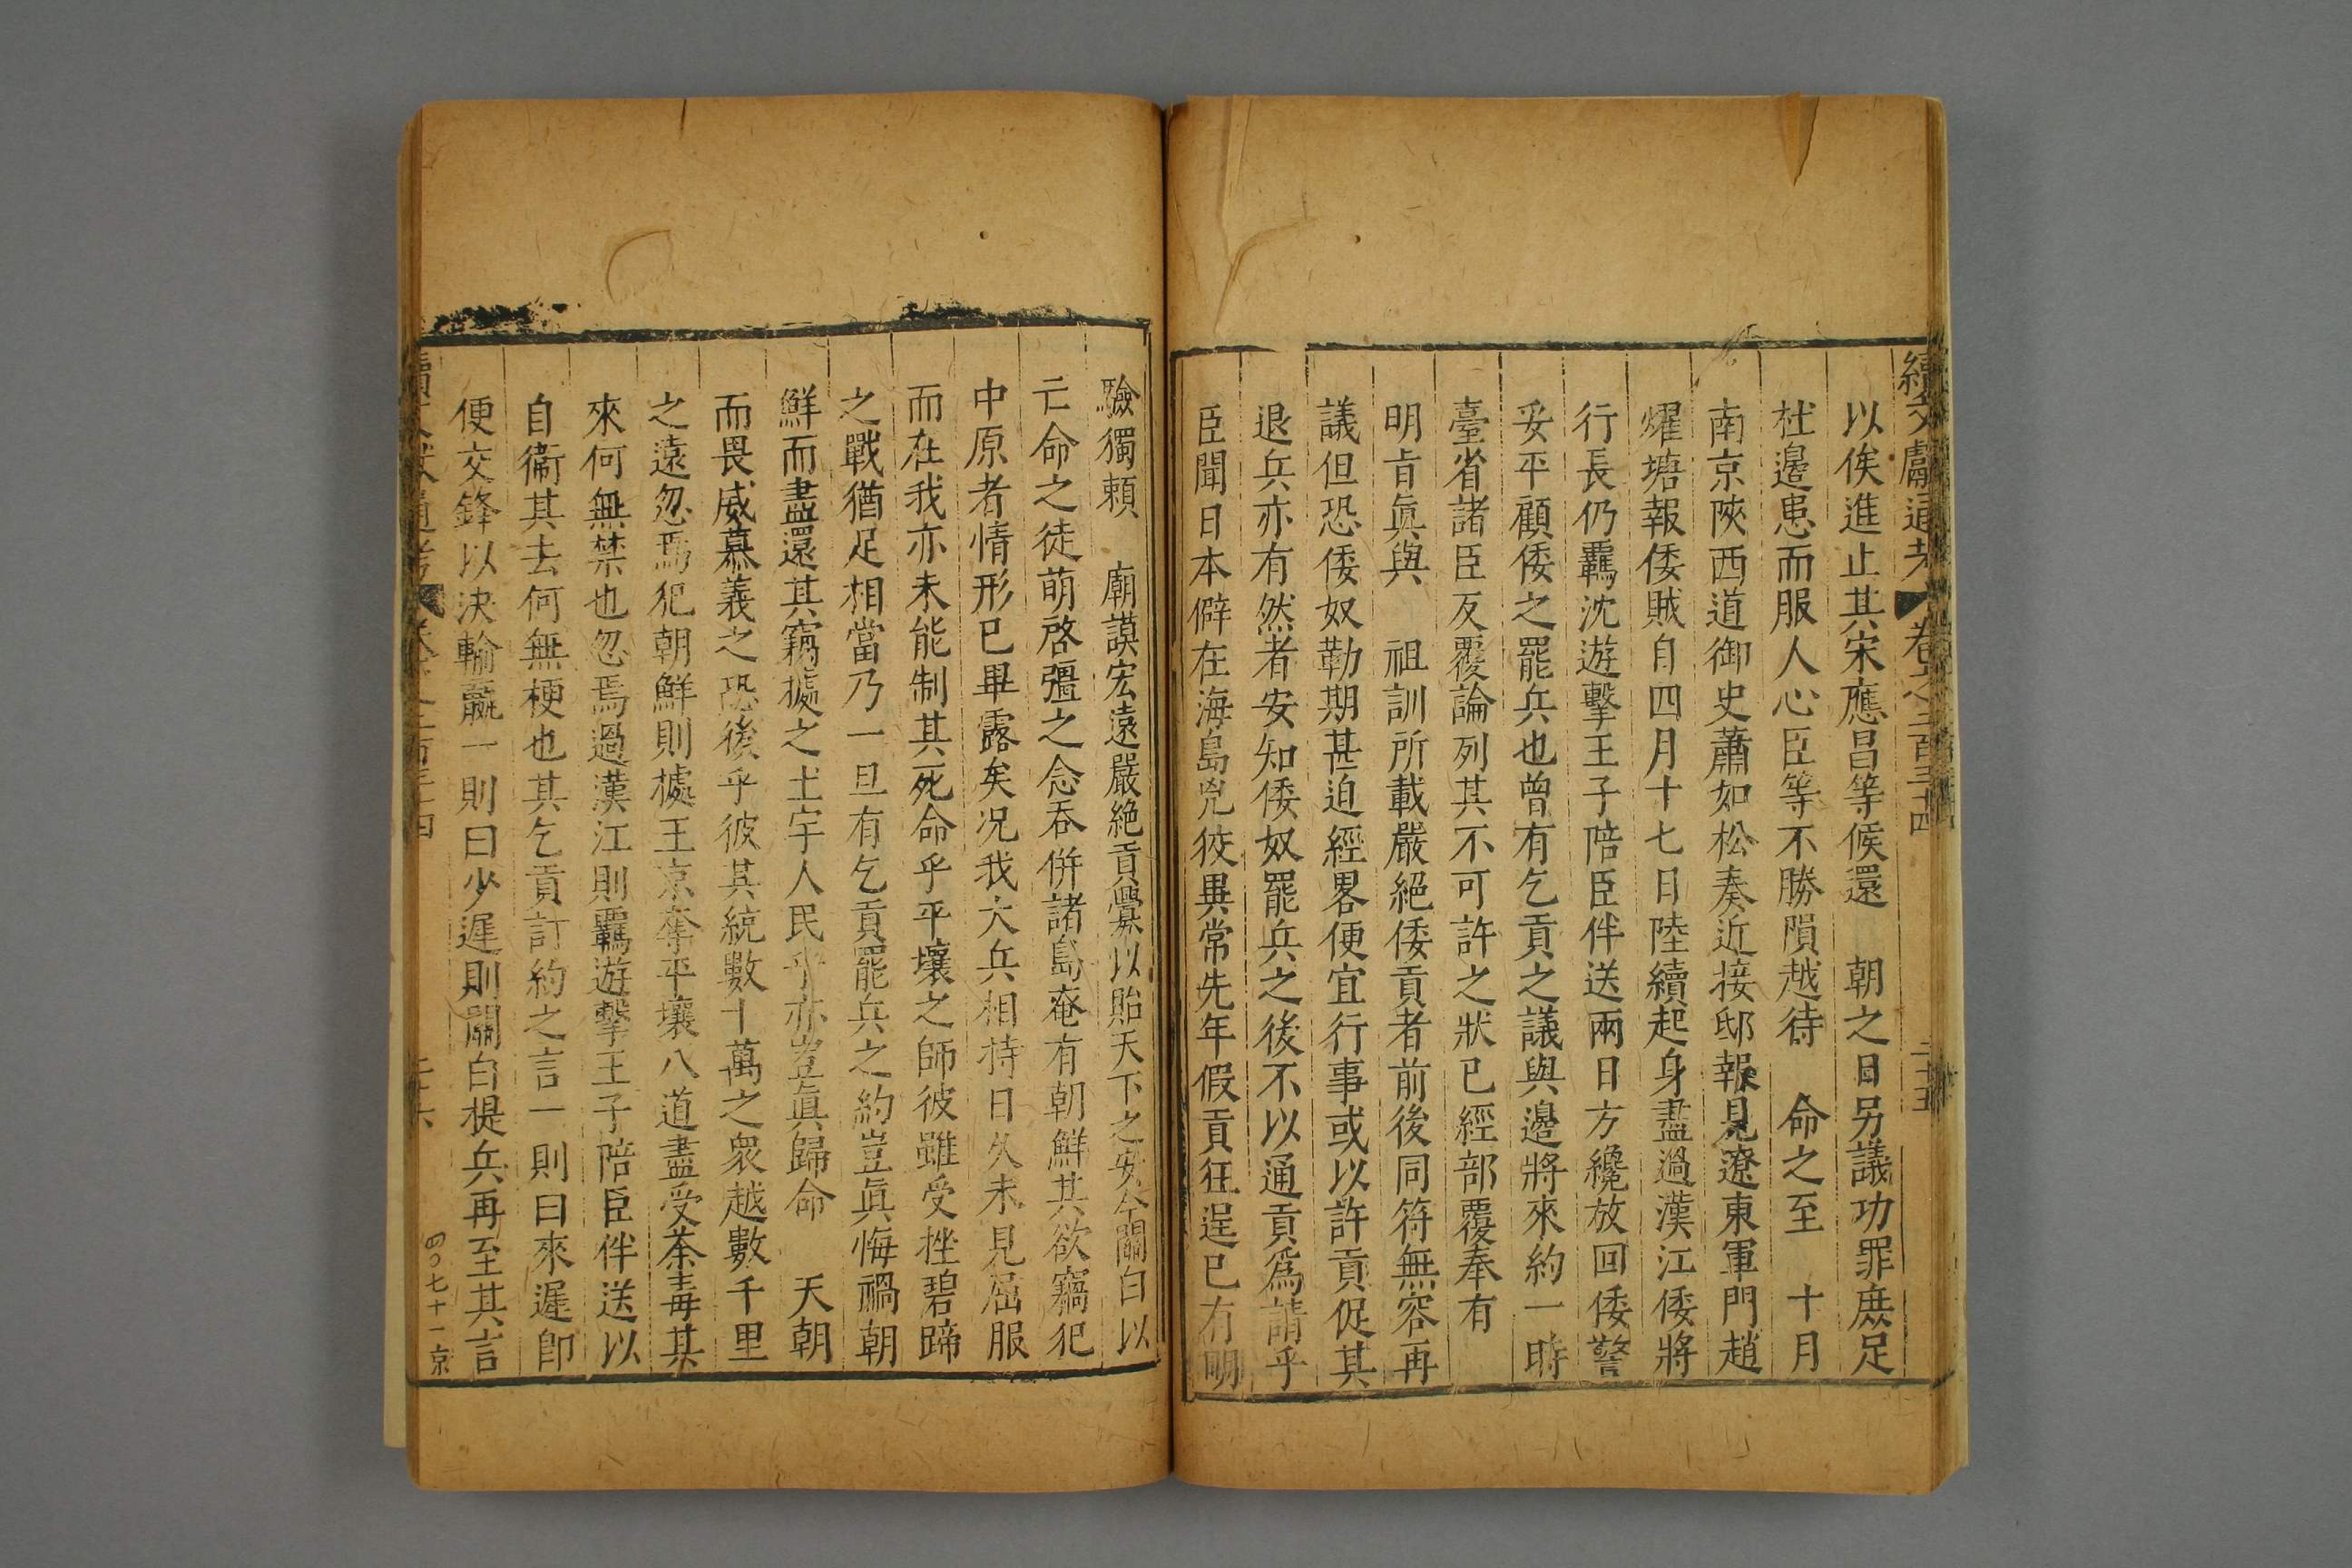 續文獻通考 卷之二百三十四 二十五
以俟進止其宋應昌等候還 朝之日另議功罪庶足
杜邊患而服人心臣等不勝隕越待 命之至 十月
南京陜西道御史蕭如松奏近接邸報見遼東軍門趙
燿塘報倭賊自四月十七日陸續起身盡過漢江倭將
行長仍羈沈遊擊王子陪臣伴送兩日方纔放回倭警
妥平顧倭之罷兵也曾有乞貢之議與邊將來約一時
臺省諸臣反覆論列其不可許之狀已經部覆奉有
明旨眞與 祖訓所載嚴絕倭貢者前後同符無容再
議但恐倭奴勒期甚迫經畧便宜行事或以許貢促其
退兵亦有然者安知倭奴罷兵之後不以通貢爲請乎
臣聞日本僻在海島兇狡異常先年假貢狂逞已有明
驗獨賴 廟謨宏遠嚴絶貢釁以貽天下之安今關白以
亡命之徒萌啓彊之念吞併諸島奄有朝鮮其欲竊犯
中原者情形已畢露矣况我大兵相持日久未見屈服
而在我亦未能制其死命乎平壤之師彼雖受挫碧蹄
之戰猶足相當乃一旦有乞貢罷兵之約豈眞悔禍朝
鮮而盡還其竊據之土宇人民乎亦豈眞歸命 天朝
而畏威慕義之恐後乎彼其統數十萬之衆越數千里
之遠忽焉犯朝鮮則據王京奪平壤八道盡受荼毒其
來何無禁也忽焉過漢江則羈遊擊王子陪臣伴送以
自衞其去何無梗也其乞貢訂約之言一則曰來遲卽
便交鋒以決輸贏一則曰少遲則關白提兵再至其言